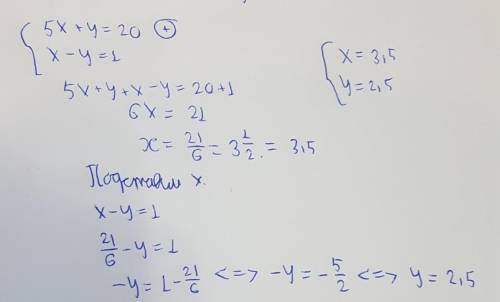 5x+y=20 ⊕
x-y=1
5x+y+x-y=20+1
6x = 21
x = 21/6 = 3 1/2 = 3,5
Подставим x.
x-y=1
21/6 - y = 1
-y = 1 - 21/6 <=> -y = - 5/2 <=> y = 2,5
x = 3,5
y = 2,5